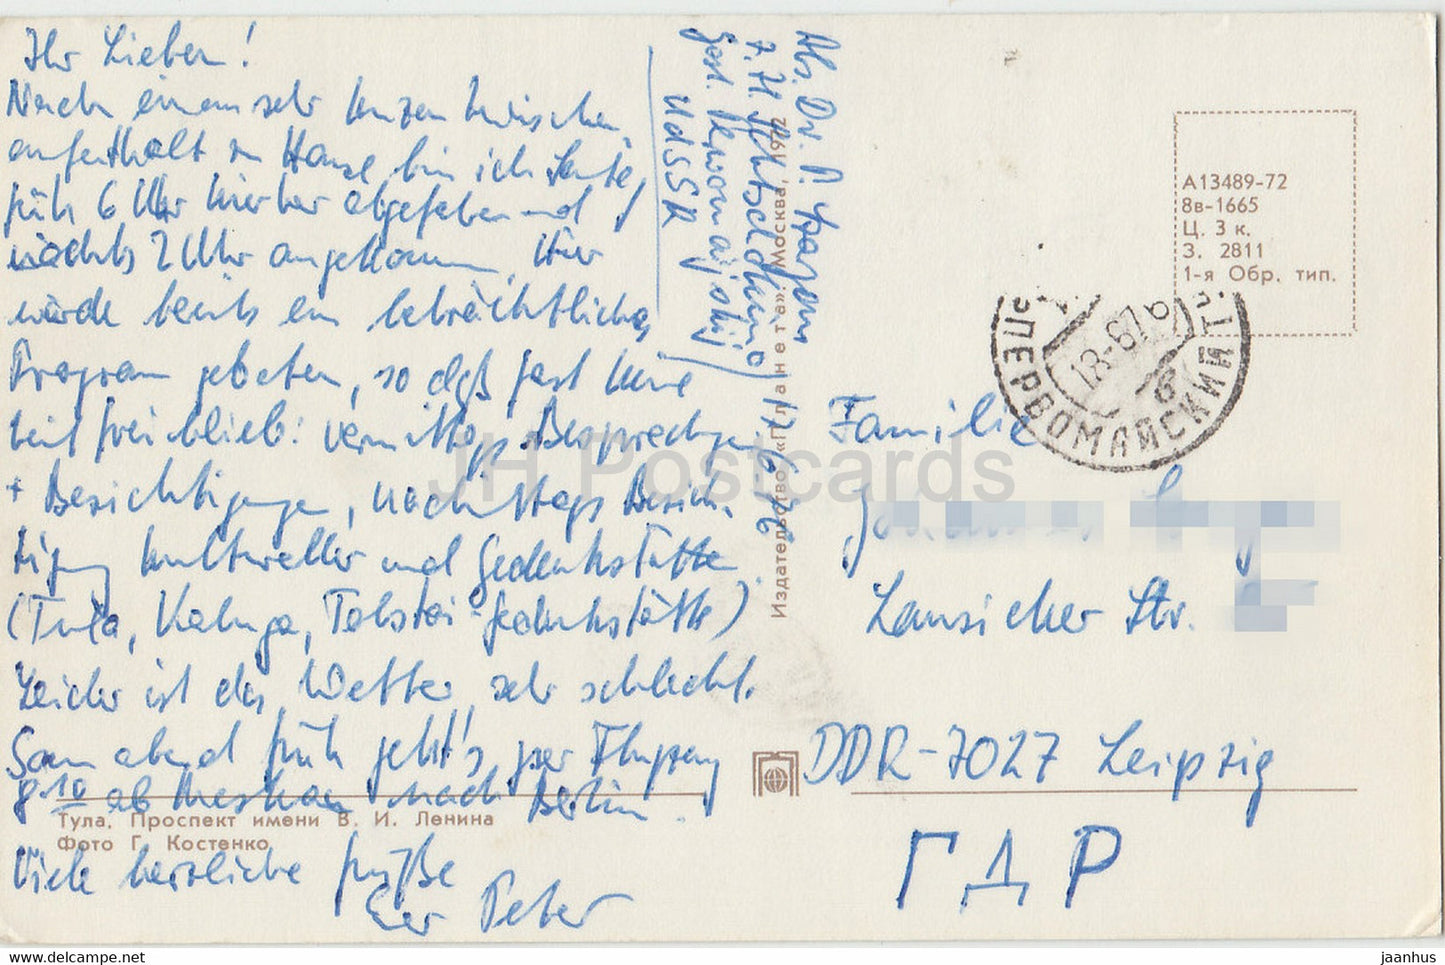 Ihr Lieben!
Nach einem sehr kurzen Zwischen-
aufenthalt zu Hause bin ich heute,
früh 6 Uhr hierher abgefahren und
nachts 2 Uhr angekommen. Hier
wurde bereits ein beträchtliches
Programm geboten, so daß fast keine
Zeit frei blieb: vormittags Besprechungen
+ Besichtigungen, nachmittags Besich-
tigung kultureller und Gedenkstätte
(Tula, Kaluga, Tolstoi-Gedenkstätte)
Leider ist das Wetter sehr schlecht.
Sonnabend früh geht's per Flugzeug
8 10 ab Moskau nach Berlin.
Viele herzliche Grüße
Euer Peter
Тула. Проспект имени В. И. Ленина
Фото Г. Костенко
Abs. Dr. P.
z. Zt.
Gost. Pervomajskij
UdSSR
17.6.76
Издательство «Планета» Москва, 1972
А13489-72
8в-1665
Ц. 3 к.
З. 2811
1-я Обр. тип.
ПЕРВОМАЙСКИЙ
18-676
Familie
Lausicker Str.
DDR-7027 Leipzig
ГДР
JH Postcards
jh-postcards.com
jaanhus